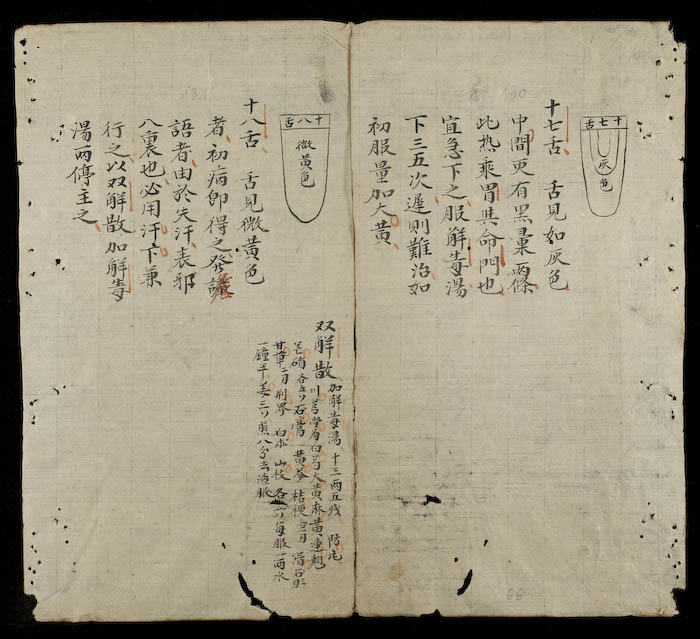 十七舌
灰色
十七舌 舌見如灰色
中間更有黑暈兩條
此热乘腎與命門也
宜急下之服解毒湯
下三五次遲則難治如
初服量加大黃
十八舌
微黃色
十八舌 舌見微黃色
者初病即得之發譫
語者由於失汗表邪
入裏也必用汗下兼
行之以双解散加解毒
湯兩停主之
双解散 加解毒湯 十三兩五戋 防
川芎 白芍大黃麻黃連翹
芒硝各五 石膏 黃芩 桔梗 滑石
甘草二 荆界 白朮 山枝 各 每服一兩水
一鍾半姜三 煎八分去渣服